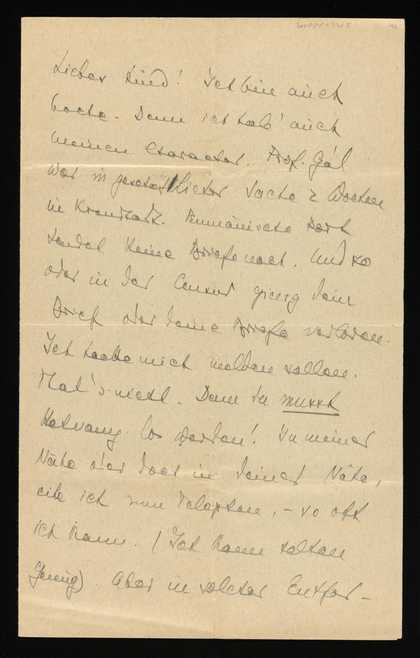 Liebes Kind! Ich bin auch
boche. Denn ich hab' auch
meinen Character. Prof. Gál
war in geschäftlicher Sache 2 Wochen
in Kronstadt. Rumänische Post
sendet keine Briefe nach. Und so
oder in der Censur gieng dein
Brief oder deine Briefe verloren.
Ich hätte mich melden sollen.
That's nicht. Denn Du musst
Hatvany los werden! In meiner
Nähe oder doch in deiner Nähe,
eile ich zum Telephon, – so oft
ich kann. (Ich kann selten
genug) Aber in solcher Entfer–